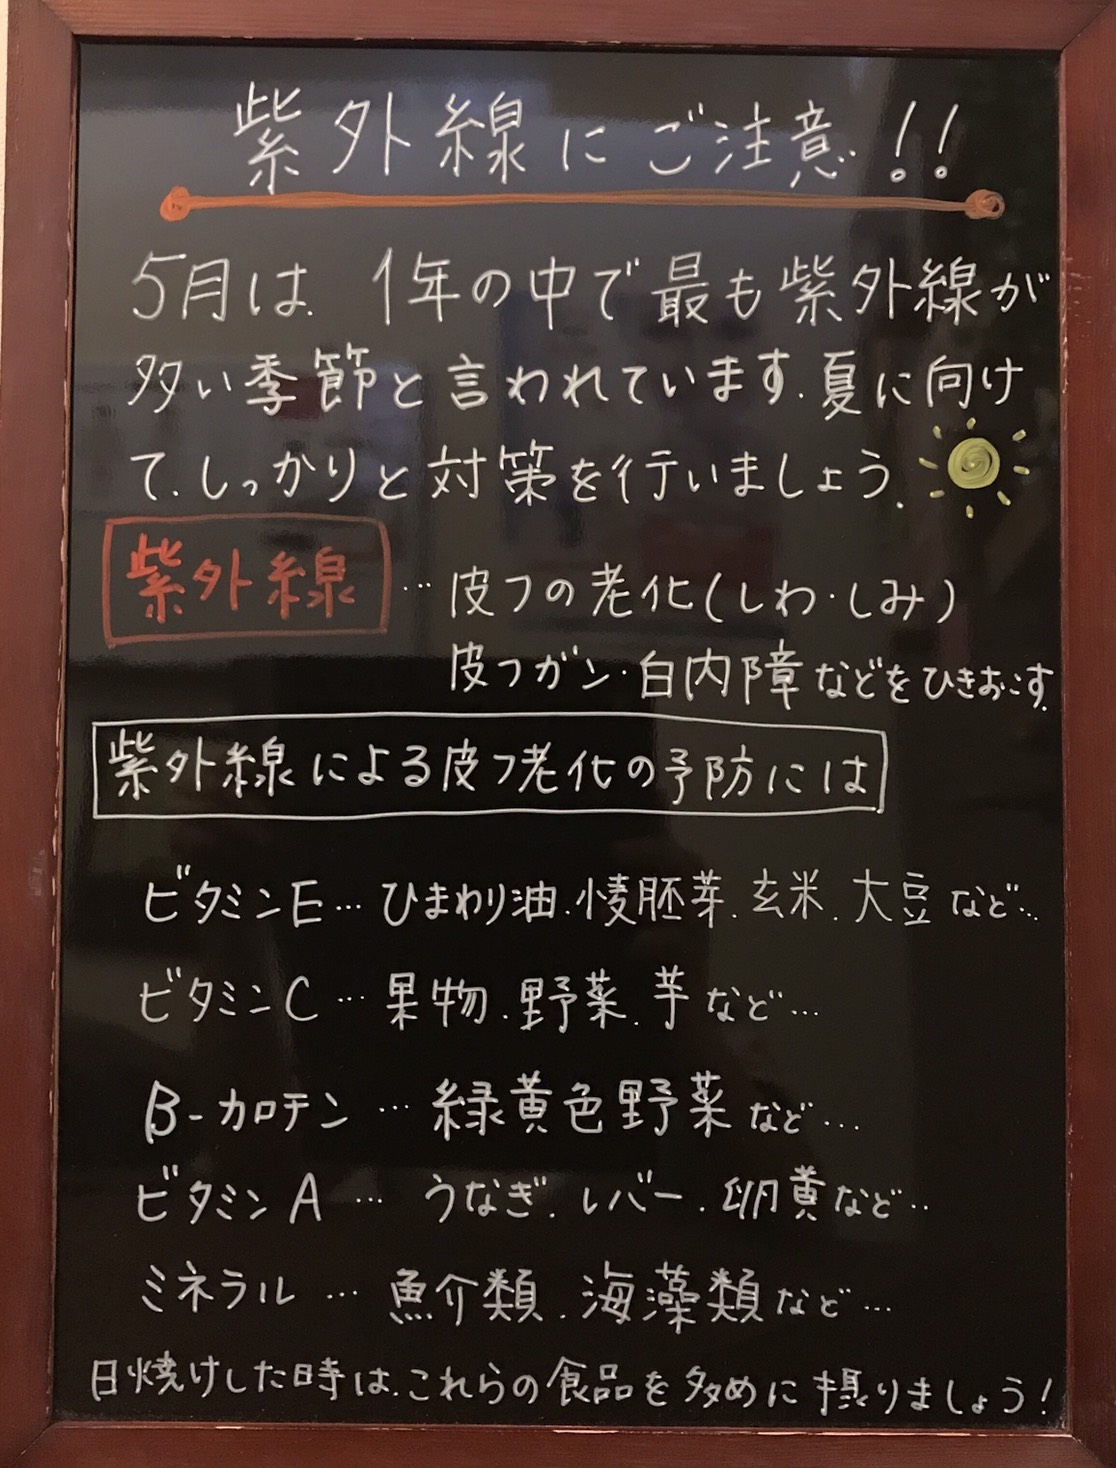 紫外線にご注意!!
5月は、1年の中で最も紫外線が
多い季節と言われています。夏に向け
て、しっかりと対策を行いましょう。
紫外線…皮フの老化(しわ・しみ)
皮フガン・白内障などをひきおこす。
紫外線による皮フ老化の予防には
ビタミンE…ひまわり油、小麦胚芽、玄米、大豆など…
ビタミンC…果物、野菜、芋など…
β-カロテン…緑黄色野菜など…
ビタミンA…うなぎ、レバー、卵黄など…
ミネラル…魚介類、海藻類など…
日焼けした時は、これらの食品を多めに摂りましょう!